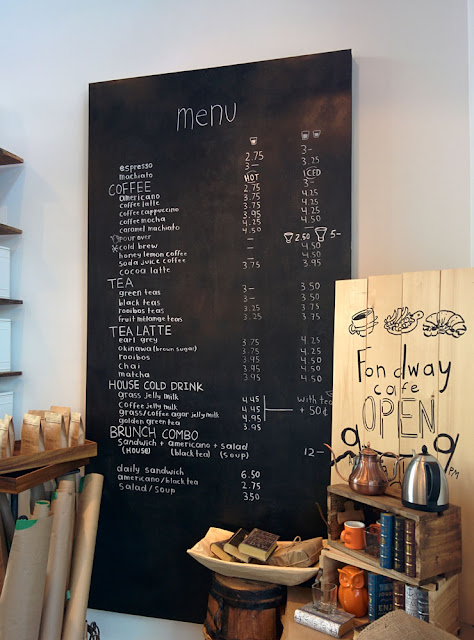 menu
espresso 2.75 3-
machiato 3- 3.25
COFFEE HOT ICED
americano 2.75 3-
coffee latte 3.75 4.25
coffee cappuccino 3.75 4.25
coffee mocha 3.95 4.25
caramel machiato 4.50 4.50
pour over - 2.50 5-
cold brew - 4.50
honey lemon coffee - 4.50
soda juice coffee - 4.50
cocoa latte 3.75 3.95
TEA
green teas 3- 3.50
black teas 3- 3.50
rooibos teas 3.25 3.75
fruit mélange teas 3.25 3.75
TEA LATTE
earl grey 3.75 4.25
okinawa (brown sugar) 3.95 4.50
rooibos 3.75 4.25
chai 3.95 4.50
matcha 3.95 4.50
HOUSE COLD DRINK
grass jelly milk 4.45 with tea
coffee jelly milk 4.95 + 50¢
grass/coffee agar jelly milk 4.95
golden green tea 3.95
BRUNCH COMBO
sandwich + americano + salad 12-
(HOUSE) (black tea) (soup)
daily sandwich 6.50
americano/black tea 2.75
salad/soup 3.50
Fondway
cafe
OPEN
PM